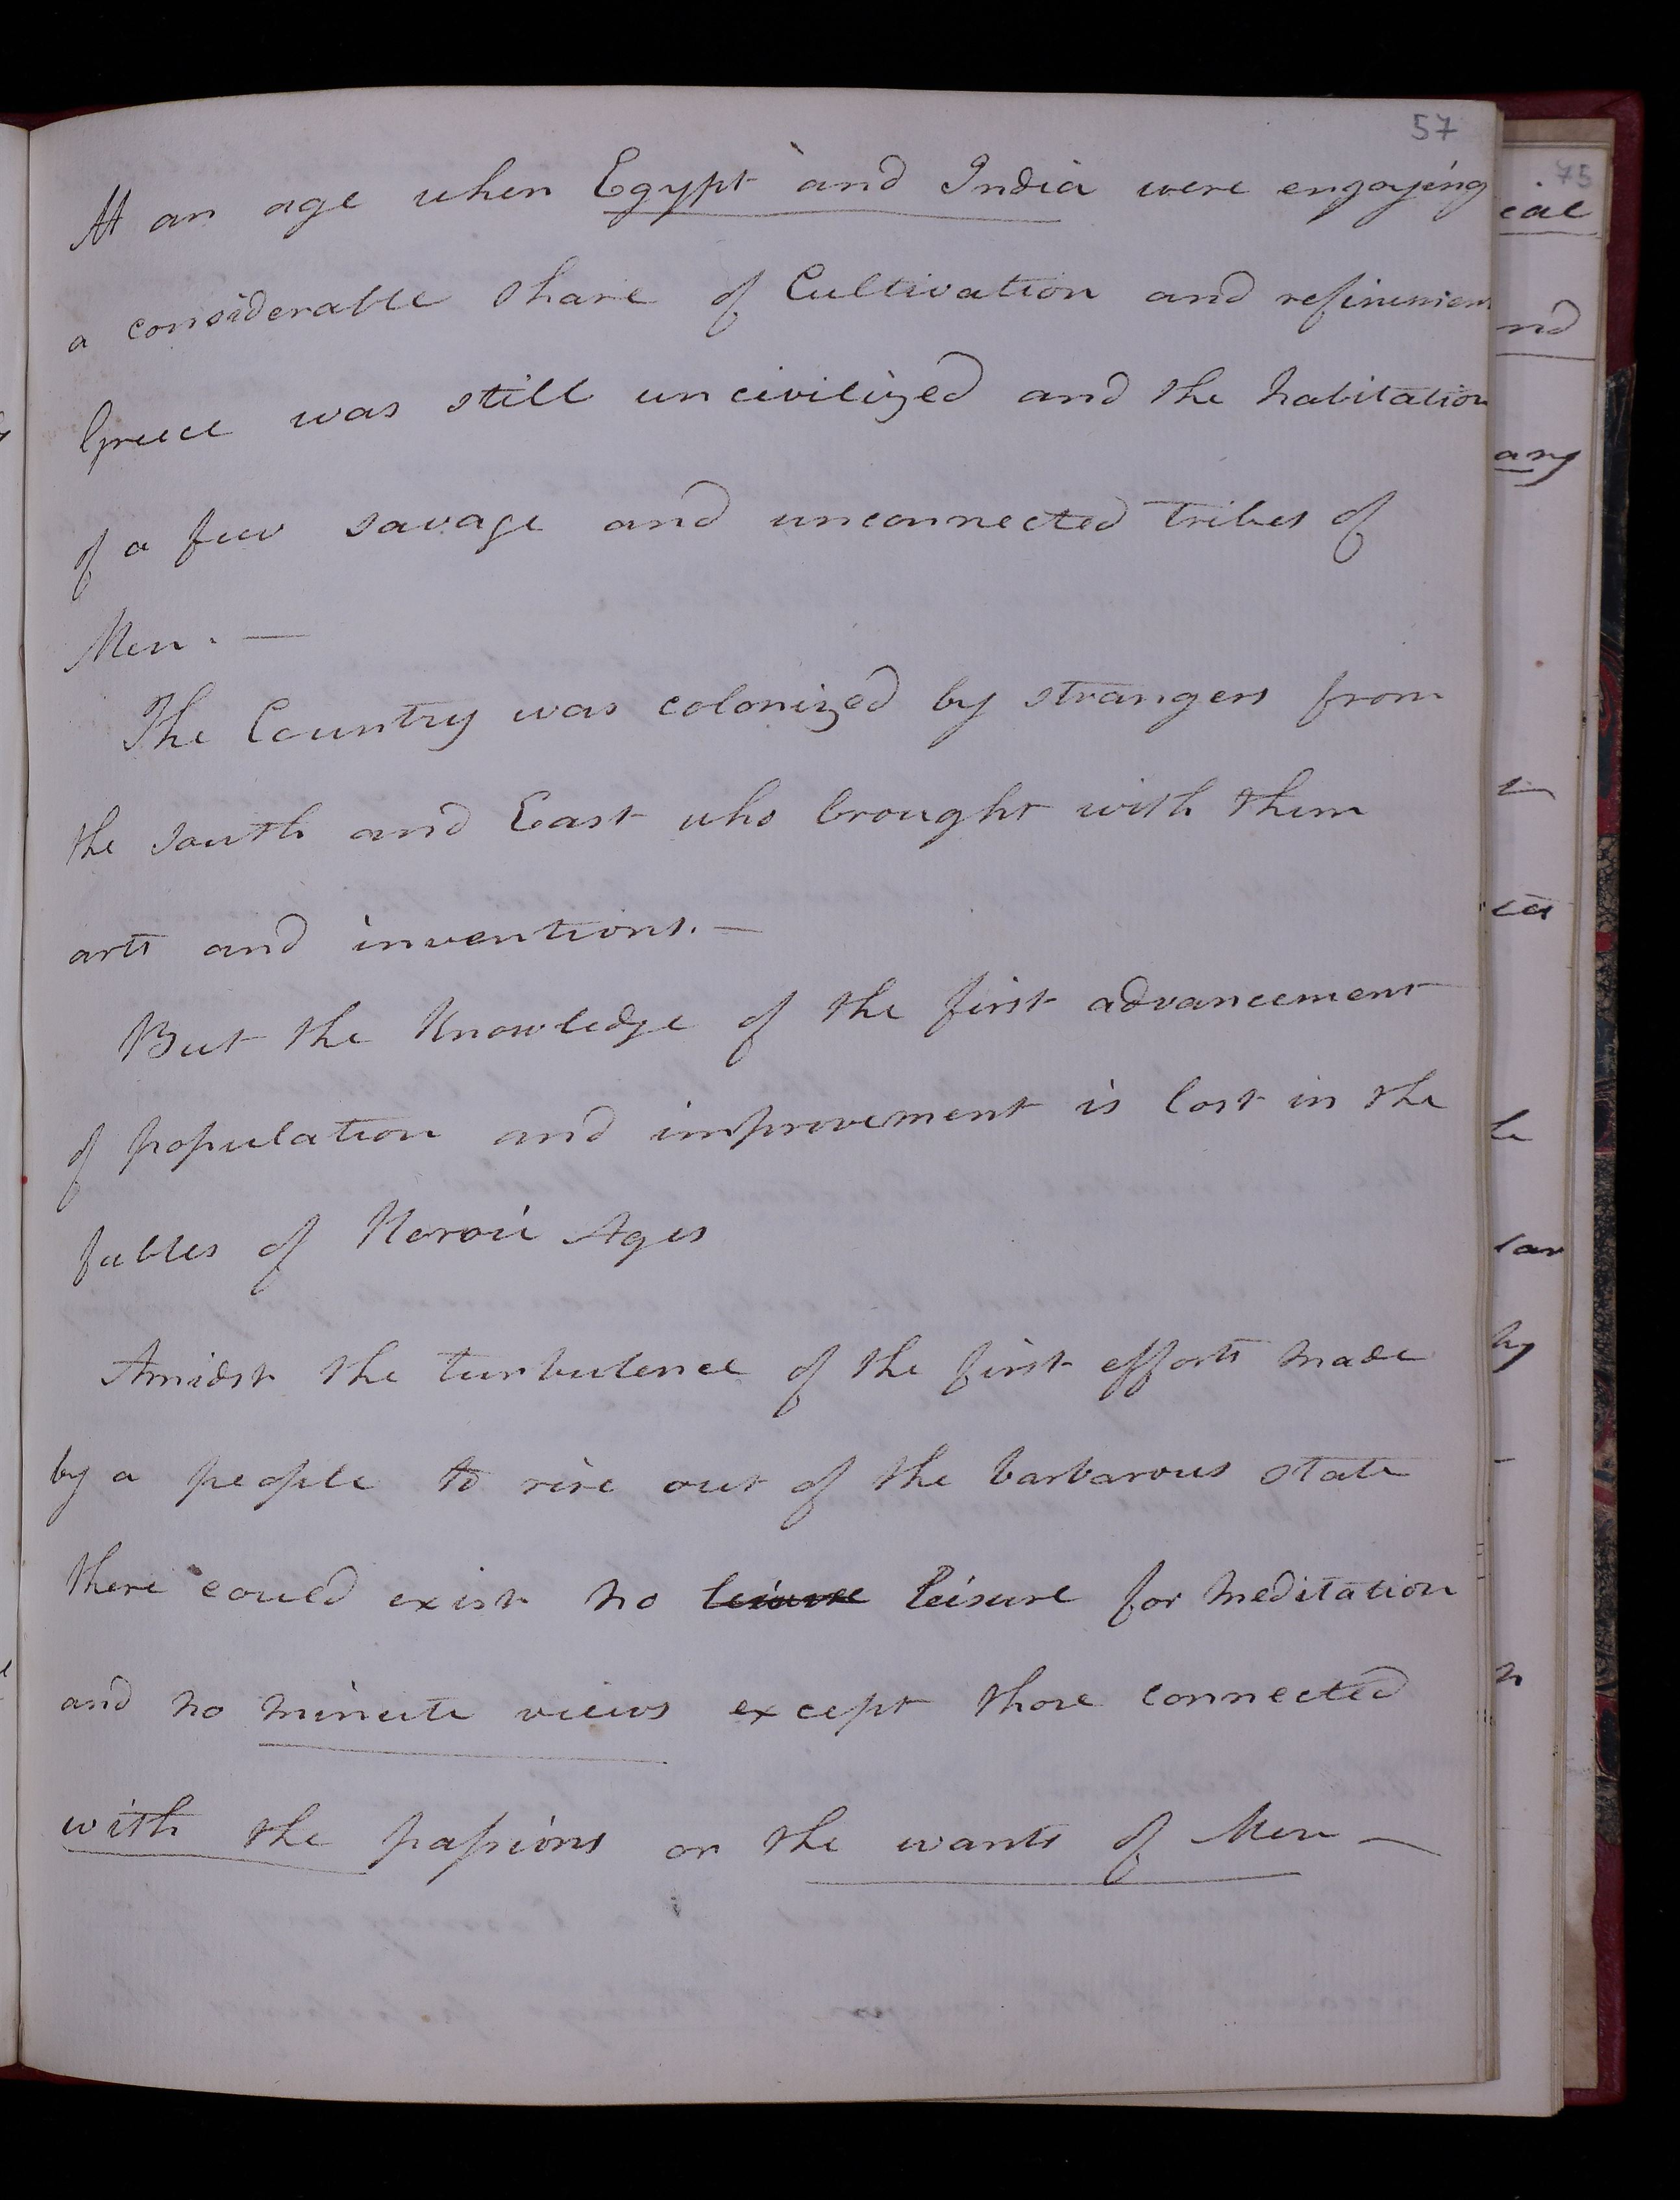 57
At an age when Egypt and India were enjoying
a considerable share of Cultivation and refinement
Greece was still uncivilized and the habitation
of a few savage and unconnected tribes of
Men. —
The Country was colonized by strangers from
the south and East who brought with them
arts and inventions. —
But the Knowledge of the first advancement
of population and improvement is lost in the
fables of Heroic Ages
Amidst the turbulence of the first efforts made
by a people to rise out of the barbarous state
there could exist no leisure leisure for meditation
and no minute views except those connected
with the passions or the wants of Men —
75
cal
nd
any
le
lar
by
n